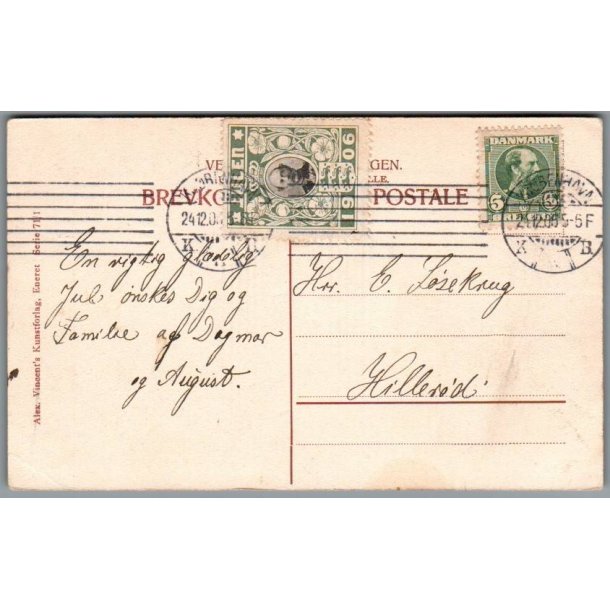 VE GEN.
LLE.
BREVKO POSTALE
JULEN
1906
DANMARK
5 5
24.12.06. 5-6F
K B
KJØBENHAVN
24.12.06. 5-6F
K B
En rigtig glædelig
Jul ønskes Dig og
Familie af Dagmar
og August.
Hrr. C. Løsekrug
Hillerød
Alex. Vincent's Kunstforlag, Eneret Serie 711